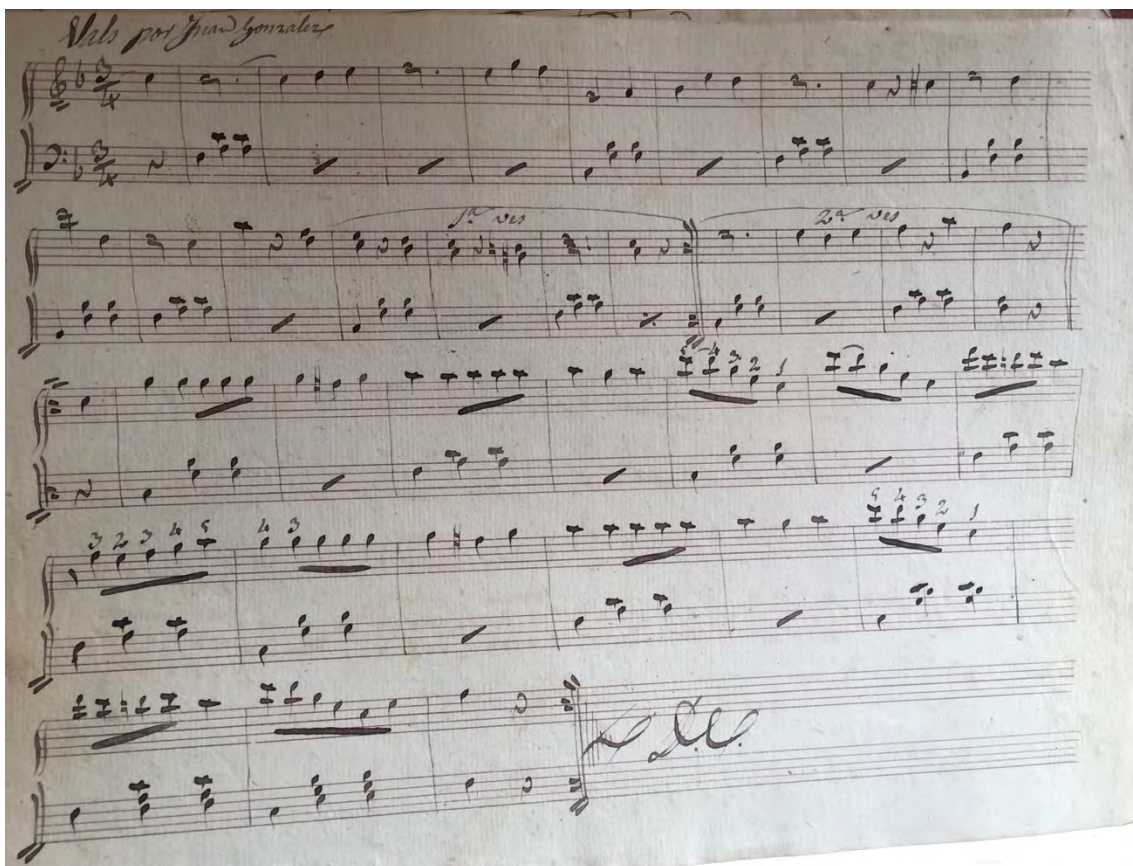 Vals por Juan Gonzalez
3 4
3 4
1ª ves 2ª ves
5 4 3 2 1
3 2 3 4 5 4 3 5 4 3 2 1
D.C.